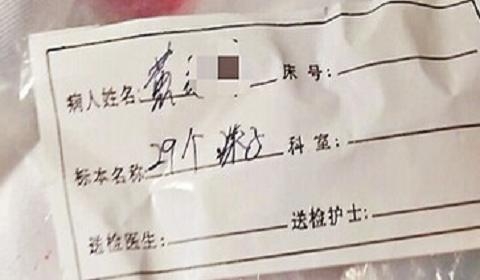 病人姓名: 黄 床号:
标本名称: 29个珠子 科室:
送检医生: 送检护士: